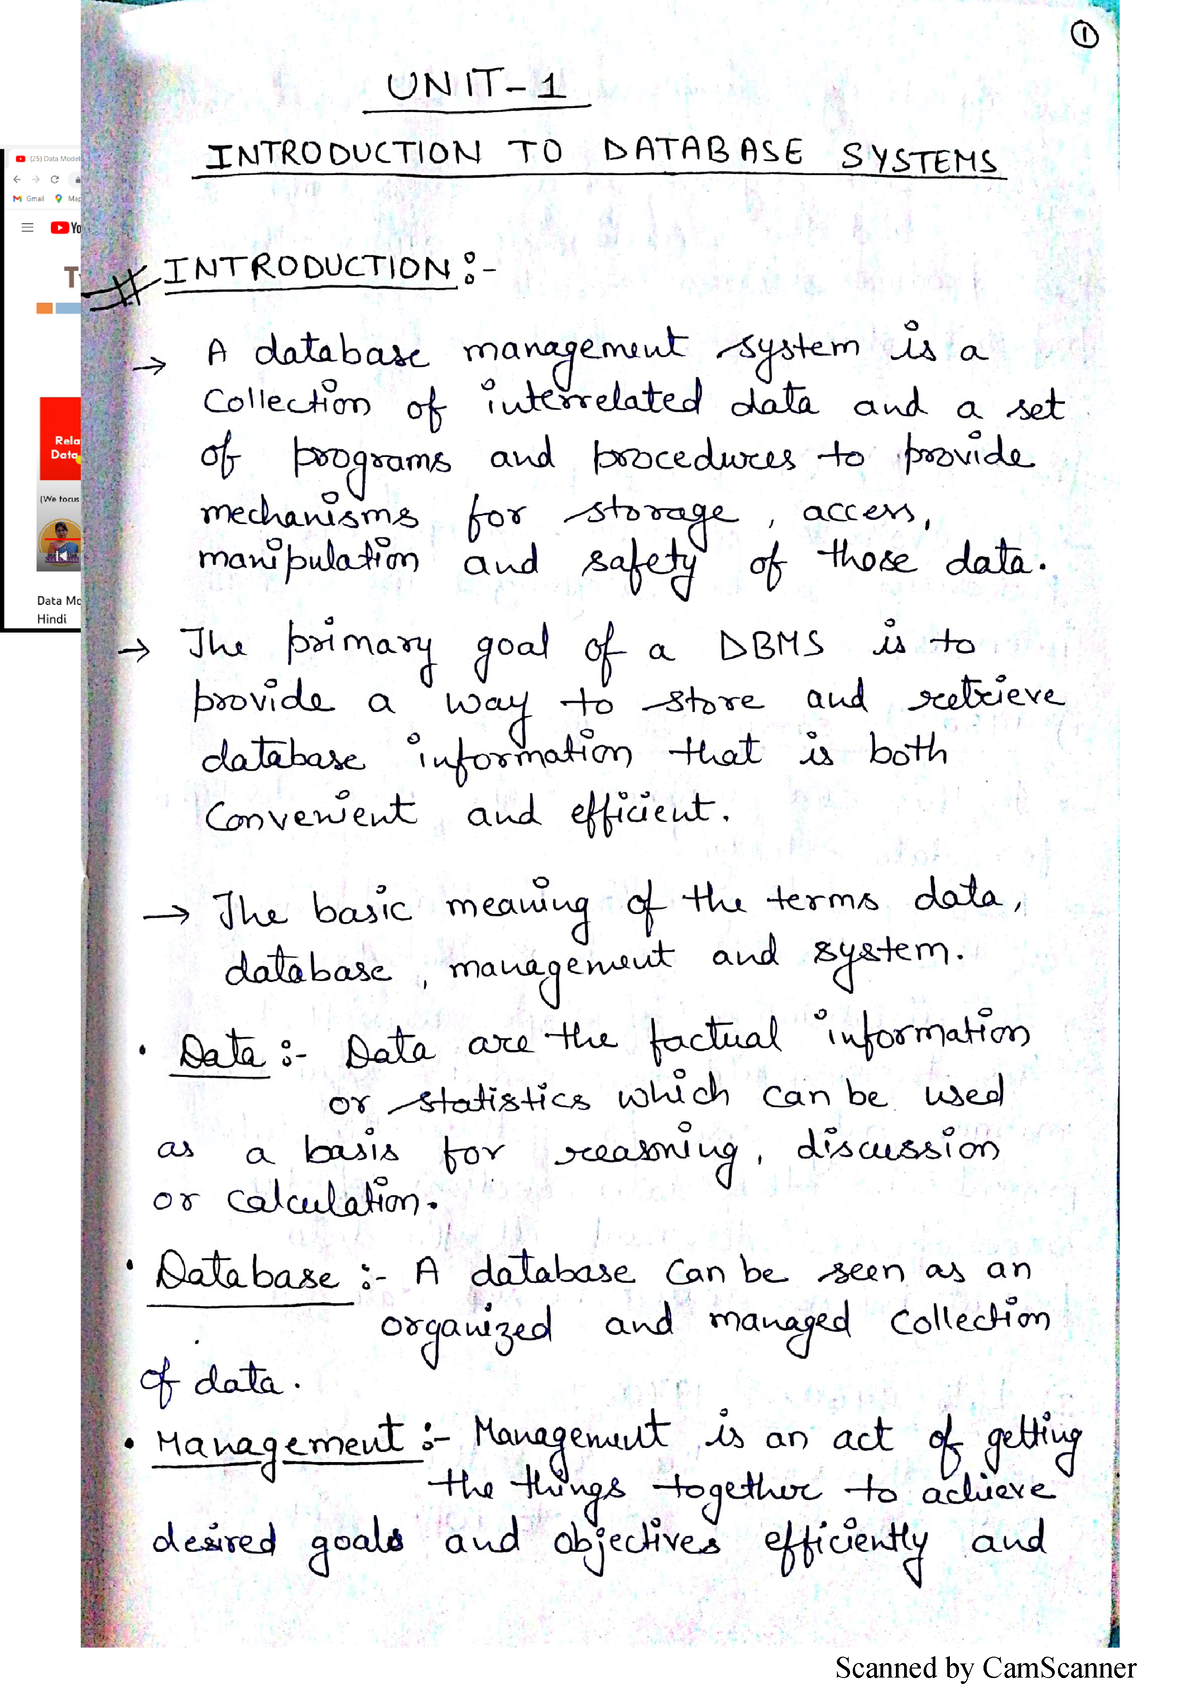 ①
UNIT-1
INTRODUCTION TO DATABASE SYSTEMS
# INTRODUCTION :-
→ A database management system is a
Collection of interrelated data and a set
of programs and procedures to provide
mechanisms for storage, access,
manipulation and safety of those data.
→ The primary goal of a DBMS is to
provide a way to store and retrieve
database information that is both
Convenient and efficient.
→ The basic meaning of the terms data,
database, management and system.
• Data :- Data are the factual information
or statistics which can be used
as a basis for reasoning, discussion
or calculation.
• Database :- A database can be seen as an
organized and managed collection
of data.
• Management :- Management is an act of getting
the things together to achieve
desired goals and objectives efficiently and
(25) Data Model
Gmail Map
Yo
T
Rela
Data
(We focus
Data Mo
Hindi
Scanned by CamScanner